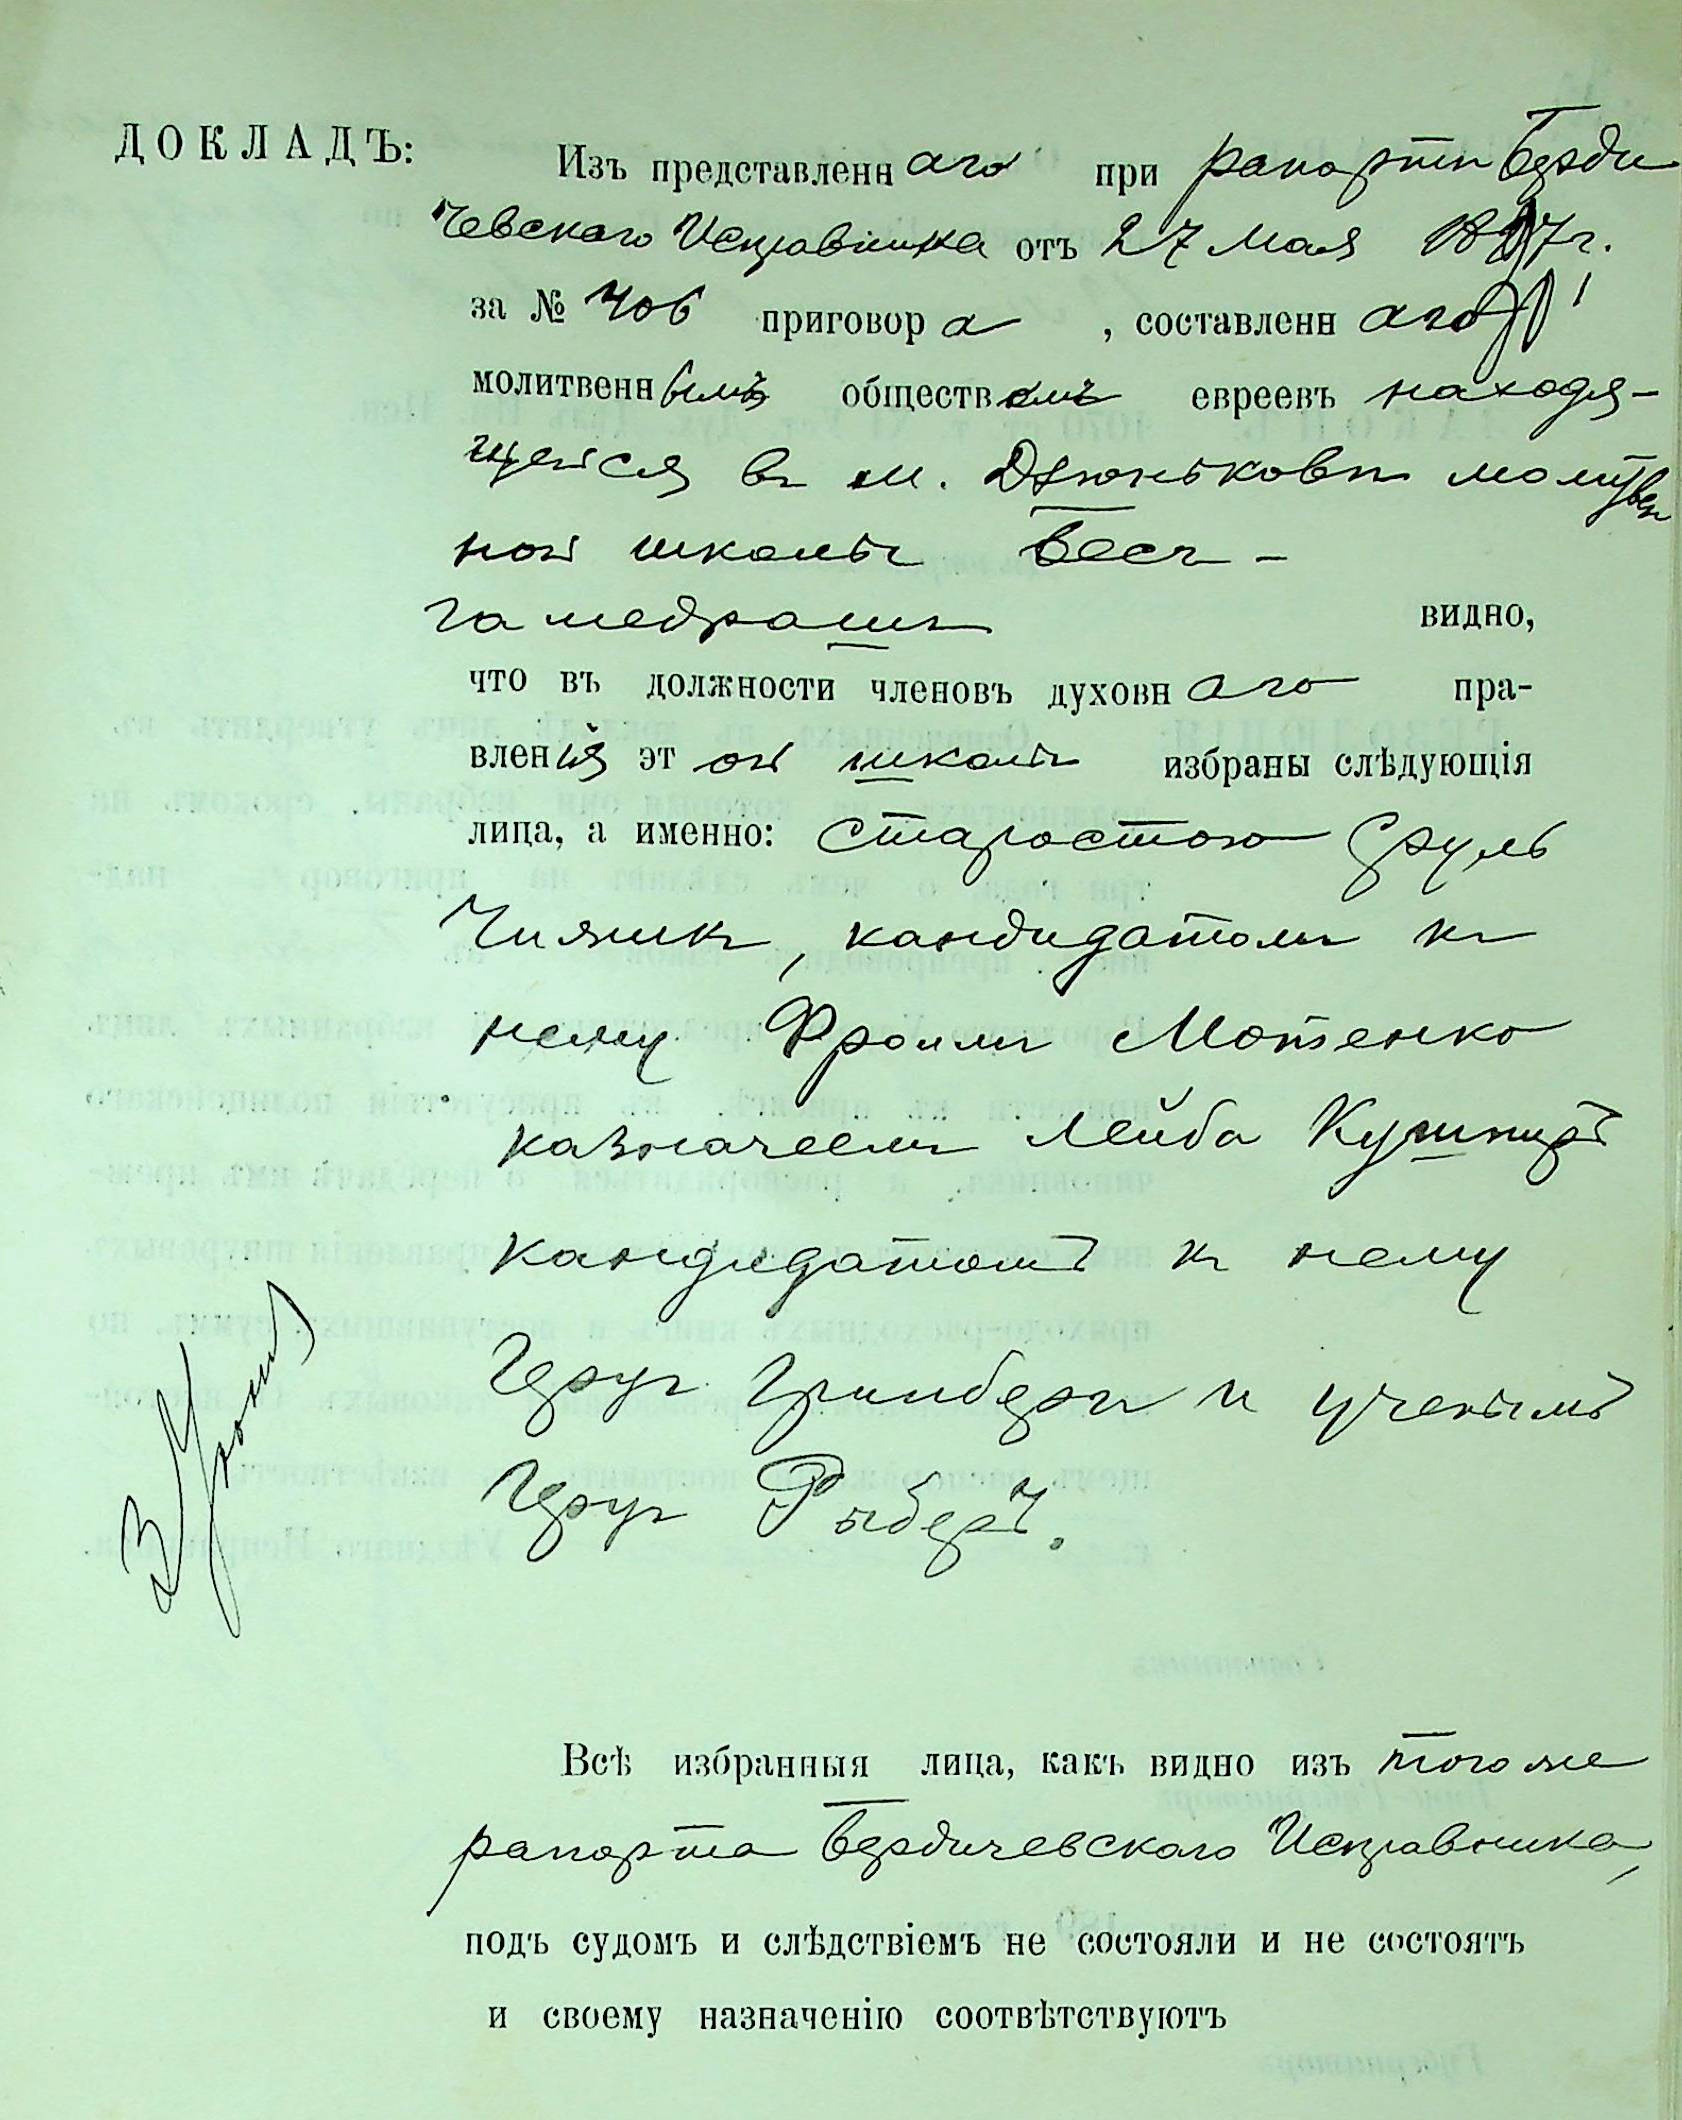 ДОКЛАДЪ:
Изъ представленнаго при рапортѣ Берди
чевскаго Исправника отъ 27 Мая 1897г.
за № 406 приговора, составленнаго
молитвеннымъ обществомъ евреевъ находя-
щейся въ м. Дзюньковѣ молитвен
ной школы Бесъ-
гамедрашъ видно,
что въ должности членовъ духовнаго пра-
вленія этой школы избраны слѣдующія
лица, а именно: старостою Сруль
Чижикъ, кандидатомъ къ
нему Фроимъ Мотенко
казначеемъ Лейба Кушниръ
кандидатомъ къ нему
Герцъ Гринбергъ и ученымъ
Герцъ Рыберъ.
Всѣ избранныя лица, какъ видно изъ того же
рапорта Бердичевскаго Исправника,
подъ судомъ и слѣдствіемъ не состояли и не состоятъ
и своему назначенію соотвѣтствуютъ